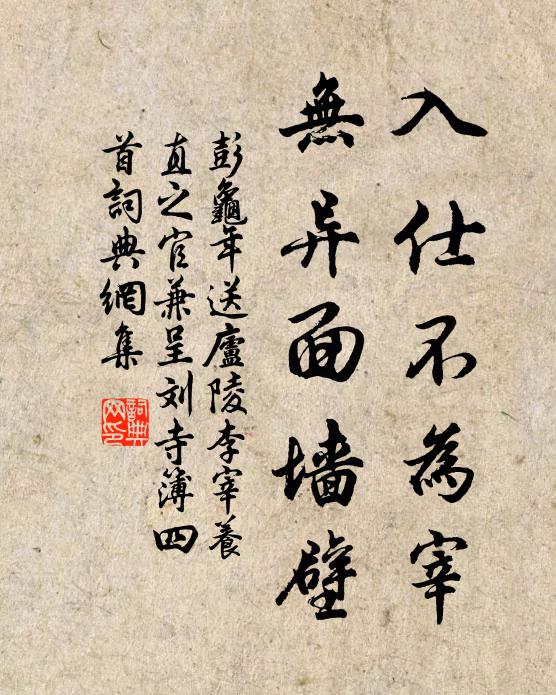 入仕不為宰
無异面墙壁
彭龜年送廬陵李宰養
直之官兼呈刘寺簿四
首詞典網集
詞典
网印